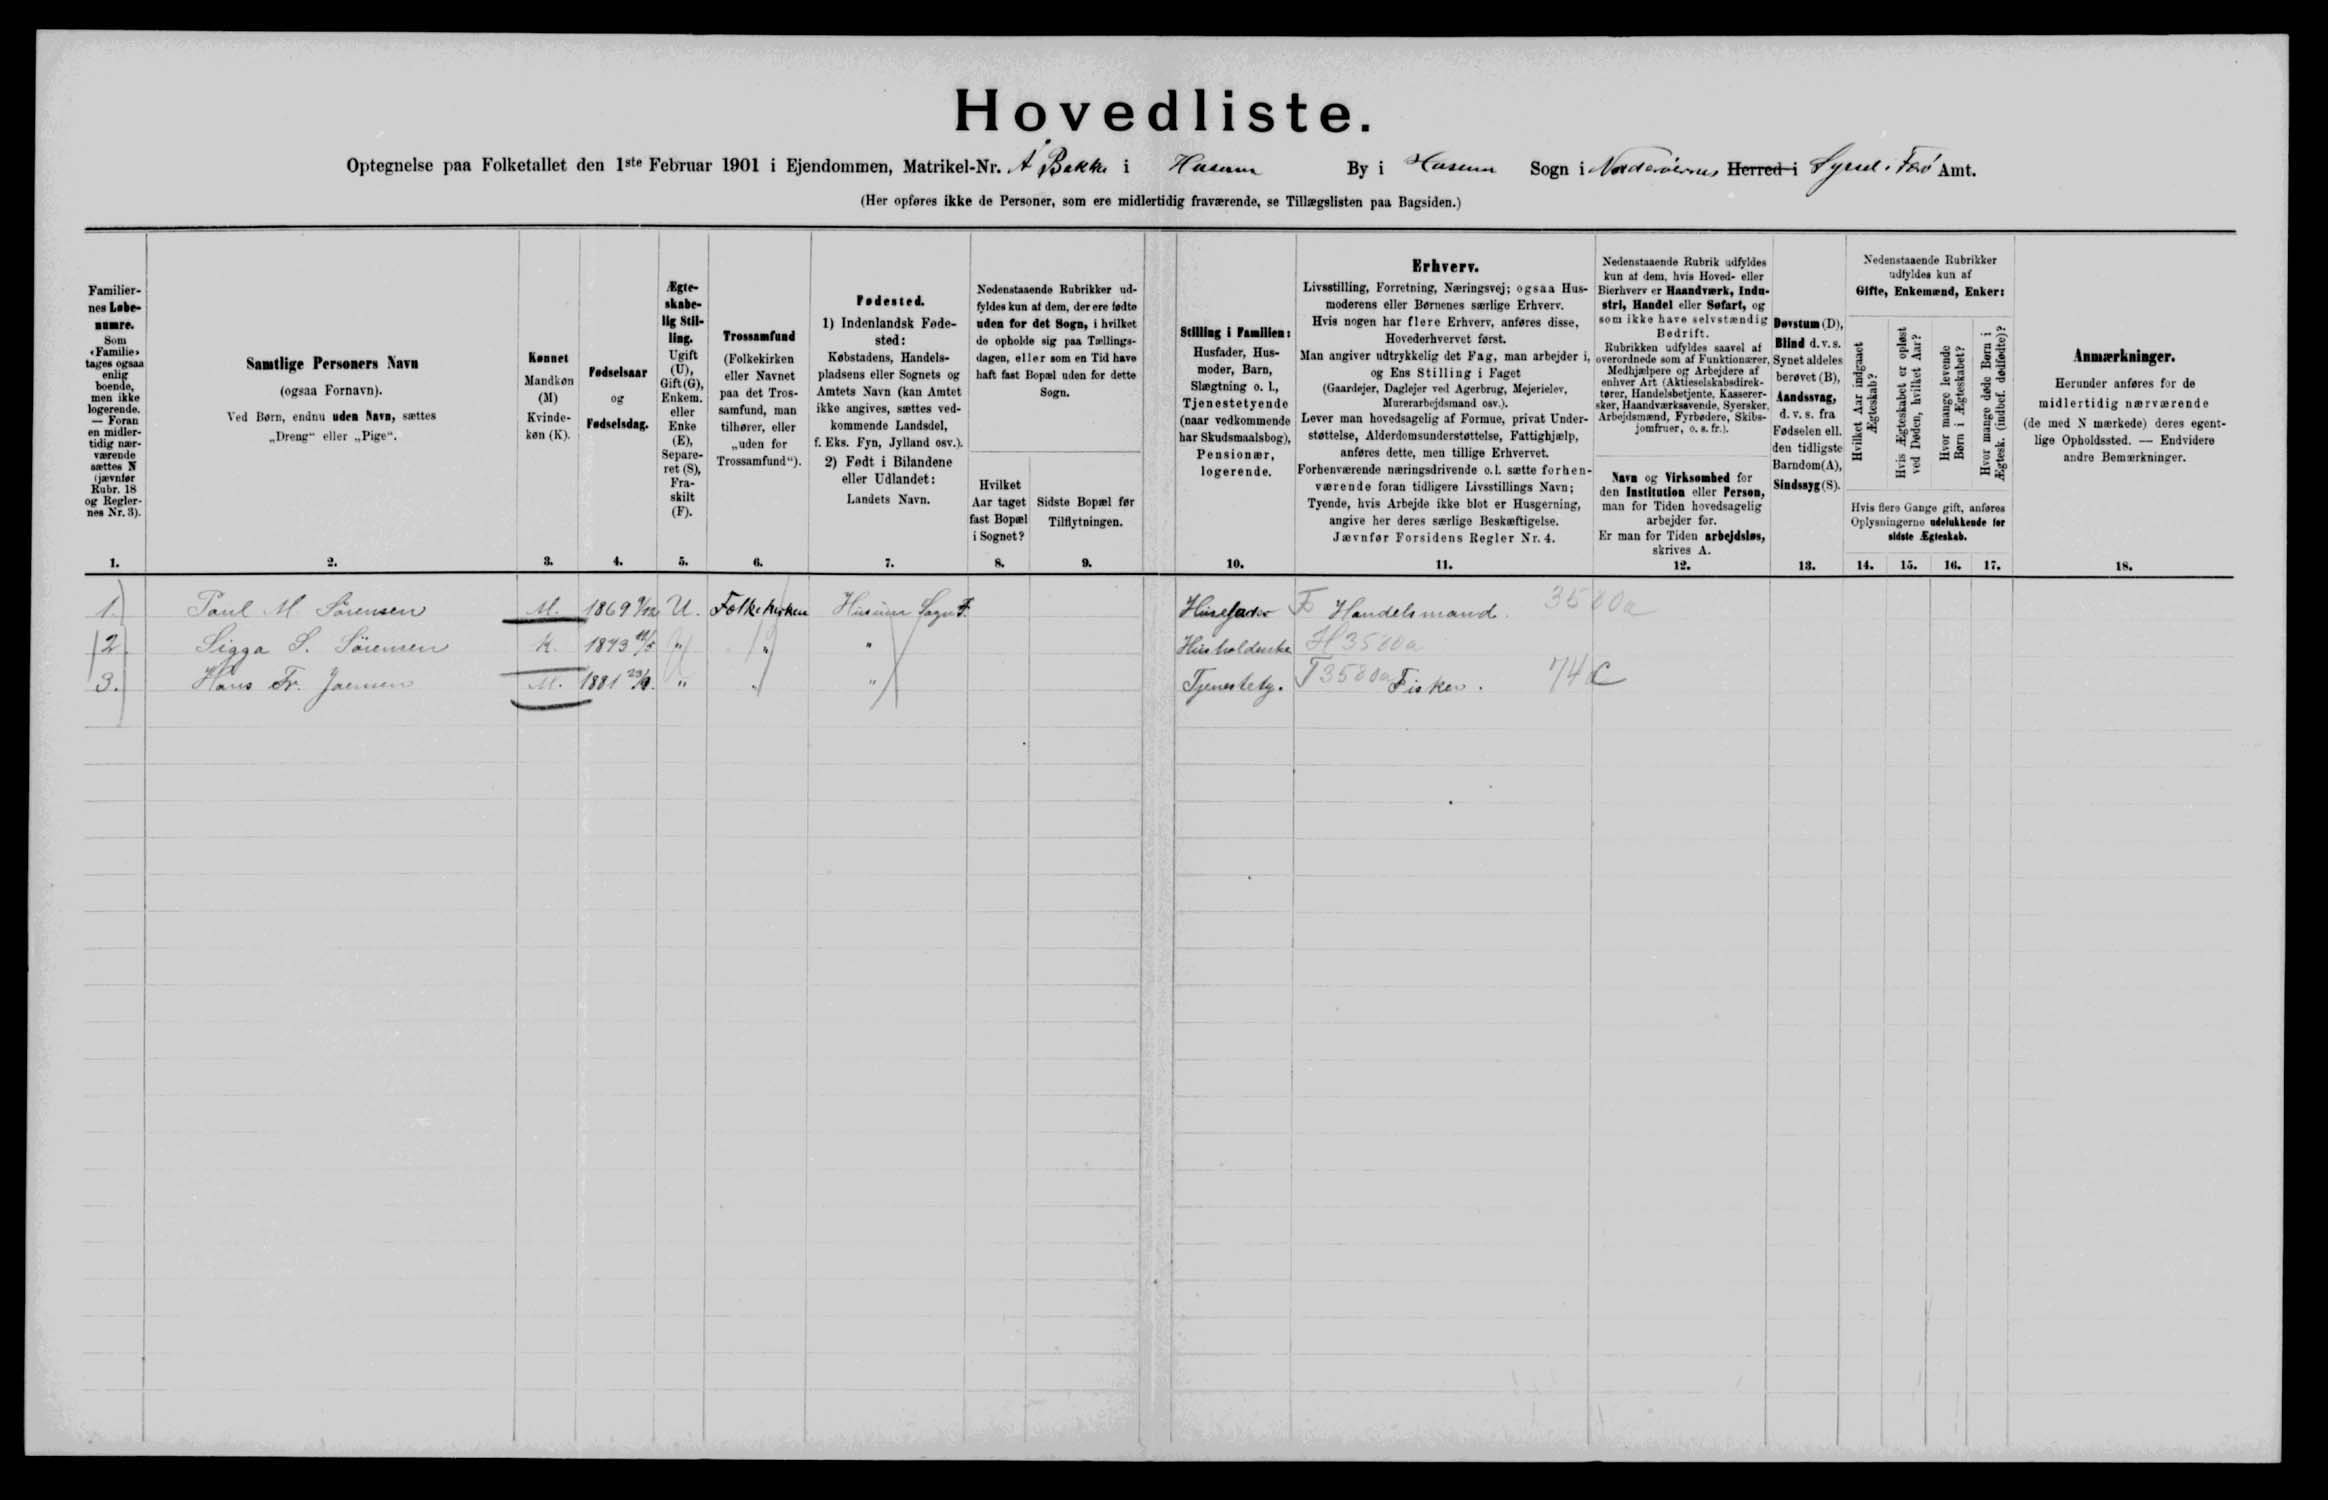 Hovedliste.
Optegnelse paa Folketallet den 1ste Februar 1901 i Ejendommen, Matrikel-Nr. Á Bakke i Husum By i Husum Sogn i Norderøernes Herred i Syssel i Færø Amt.
(Her opføres ikke de Personer, som ere midlertidig fraværende, se Tillægslisten paa Bagsiden.)
Familier-
nes Løbe-
numre.
Som
«Familie»
tages ogsaa
enlig
boende,
men ikke
logerende.
— Foran
en midler-
tidig nær-
værende
sættes N
(jævnfør
Rubr. 18
og Regler-
nes Nr. 3).
1.
Samtlige Personers Navn
(ogsaa Fornavn).
Ved Børn, endnu uden Navn, sættes
„Dreng“ eller „Pige“.
2.
Kønnet
Mandkøn
(M)
Kvinde-
køn (K).
3.
Fødselsaar
og
Fødselsdag.
4.
Ægte-
skabe-
lig Stil-
ling.
Ugift
(U),
Gift (G),
Enkem.
eller
Enke
(E),
Separe-
ret (S),
Fra-
skilt
(F).
5.
Trossamfund
(Folkekirken
eller Navnet
paa det Tros-
samfund, man
tilhører, eller
„uden for
Trossamfund“).
6.
Fødested.
1) Indenlandsk Føde-
sted:
Købstadens, Handels-
pladsens eller Sognets og
Amtets Navn (kan Amtet
ikke angives, sættes ved-
kommende Landsdel,
f. Eks. Fyn, Jylland osv.).
2) Født i Bilandene
eller Udlandet:
Landets Navn.
7.
Nedenstaaende Rubrikker ud-
fyldes kun af dem, der ere fødte
uden for det Sogn, i hvilket
de opholde sig paa Tællings-
dagen, eller som en Tid have
haft fast Bopæl uden for dette
Sogn.
Hvilket
Aar taget
fast Bopæl
i Sognet?
8.
Sidste Bopæl før
Tilflytningen.
9.
Stilling i Familien:
Husfader, Hus-
moder, Barn,
Slægtning o. l.,
Tjenestetyende
(naar vedkommende
har Skudsmaalsbog),
Pensionær,
logerende.
10.
Erhverv.
Livsstilling, Forretning, Næringsvej; ogsaa Hus-
moderens eller Børnenes særlige Erhverv.
Hvis nogen har flere Erhverv, anføres disse,
Hovederhvervet først.
Man angiver udtrykkelig det Fag, man arbejder i,
og Ens Stilling i Faget
(Gaardejer, Daglejer ved Agerbrug, Mejerielev,
Murerarbejdsmand osv.).
Lever man hovedsagelig af Formue, privat Under-
støttelse, Alderdomsunderstøttelse, Fattighjælp,
anføres dette, men tillige Erhvervet.
Forhenværende næringsdrivende o. l. sætte forhen-
værende foran tidligere Livsstillings Navn;
Tyende, hvis Arbejde ikke blot er Husgerning,
angive her deres særlige Beskæftigelse.
Jævnfør Forsidens Regler Nr. 4.
11.
Nedenstaaende Rubrik udfyldes
kun af dem, hvis Hoved- eller
Bierhverv er Haandværk, Indu-
stri, Handel eller Søfart, og
som ikke have selvstændig
Bedrift.
Rubrikken udfyldes saavel af
overordnede som af Funktionærer,
Medhjælpere og Arbejdere af
enhver Art (Aktieselskabsdirek-
tører, Handelsbetjente, Kasserer-
sker, Haandværkssvende, Syersker,
Arbejdsmænd, Fyrbødere, Skibs-
jomfruer, o. s. fr.).
Navn og Virksomhed for
den Institution eller Person,
man for Tiden hovedsagelig
arbejder for.
Er man for Tiden arbejdsløs,
skrives A.
12.
Døvstum (D),
Blind d. v. s.
Synet aldeles
berøvet (B),
Aandssvag,
d. v. s. fra
Fødselen ell.
den tidligste
Barndom (A),
Sindssyg (S).
13.
Nedenstaaende Rubrikker
udfyldes kun af
Gifte, Enkemænd, Enker:
Hvilket Aar indgaaet
Ægteskab?
Hvis Ægteskabet er opløst
ved Døden, hvilket Aar?
Hvor mange levende
Børn i Ægteskabet?
Hvor mange døde Børn i
Ægtesk. (indbef. dødfødte)?
Hvis flere Gange gift, anføres
Oplysningerne udelukkende for
sidste Ægteskab.
14. 15. 16. 17.
Anmærkninger.
Herunder anføres for de
midlertidig nærværende
(de med N mærkede) deres egent-
lige Opholdssted. — Endvidere
andre Bemærkninger.
18.
1. Poul M. Sörensen M. 1869 U. Folkekirken Husum Sogn F. Husfader F Handelsmand. 3580a
2. Sigga S. Sörensen K. 1873 " " " Husholderske H3580a
3. Hans Fr. Joensen M. 1881 " " " Tjenestety. T3580a Fisker. 74 C